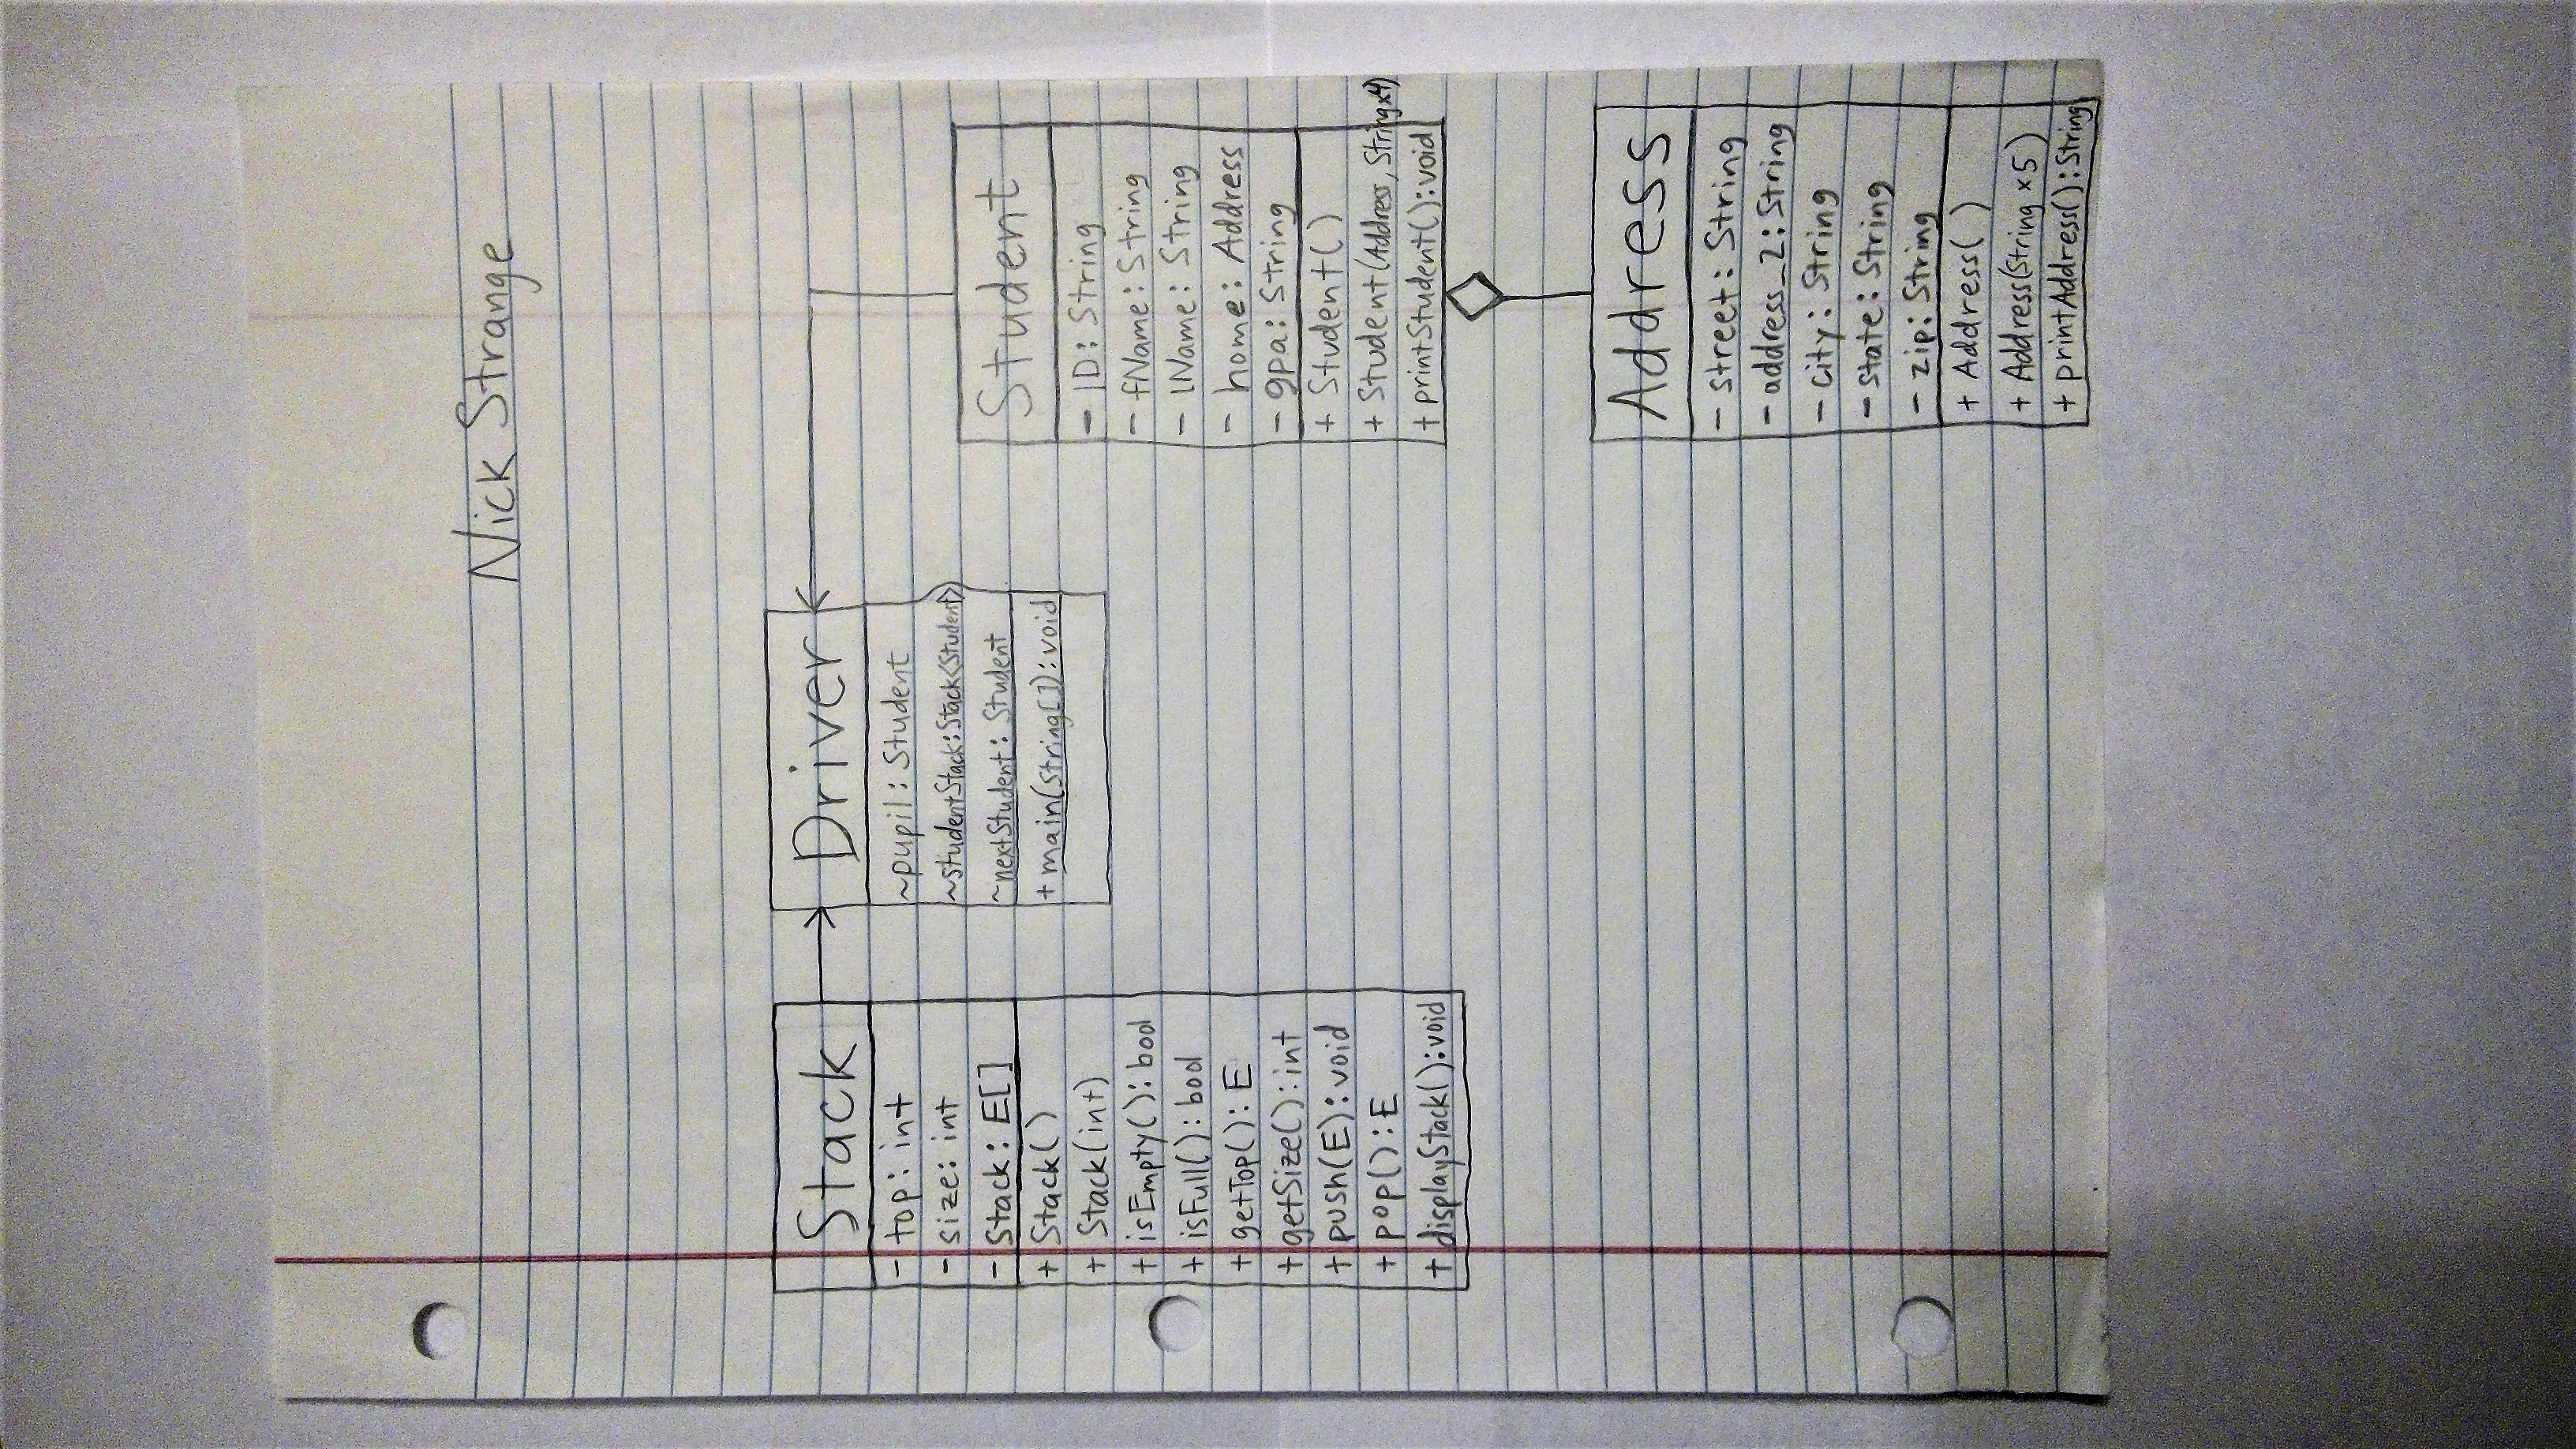 Nick Strange
Stack
- top: int
- size: int
- Stack: E[]
+ Stack()
+ Stack(int)
+ isEmpty(): bool
+ isFull(): bool
+ getTop(): E
+ getSize(): int
+ push(E): void
+ pop(): E
+ displayStack(): void
Driver
~pupil: Student
~studentStack: Stack<Student>
~nextStudent: Student
+ main(String[]): void
Student
- ID: String
- fName: String
- lName: String
- home: Address
- gpa: String
+ Student()
+ Student(Address, String x4)
+ printStudent(): void
Address
- street: String
- address_2: String
- city: String
- state: String
- zip: String
+ Address()
+ Address(String x5)
+ printAddress(): String